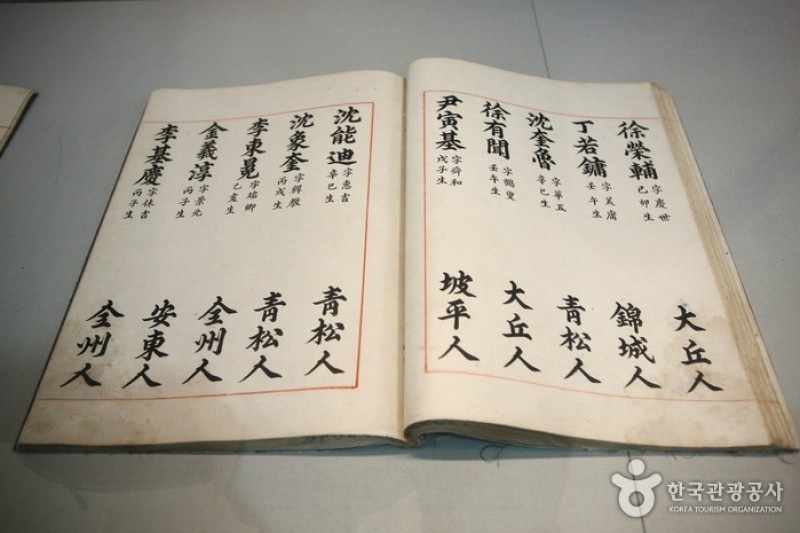 徐榮輔 字慶世 己卯生 大丘人
丁若鏞 字美庸 壬午生 錦城人
沈奎魯 字華五 辛巳生 青松人
徐有聞 字鶴叟 壬午生 大丘人
尹寅基 字舜和 戊子生 坡平人
沈能迪 字惠吉 辛巳生 青松人
沈象奎 字穉敎 丙戌生 青松人
李東冕 字瑞卿 生 全州人
金羲淳 字景元 丙子生 安東人
李基慶 字休吉 丙子生 全州人
한국관광공사
KOREA TOURISM ORGANIZATION